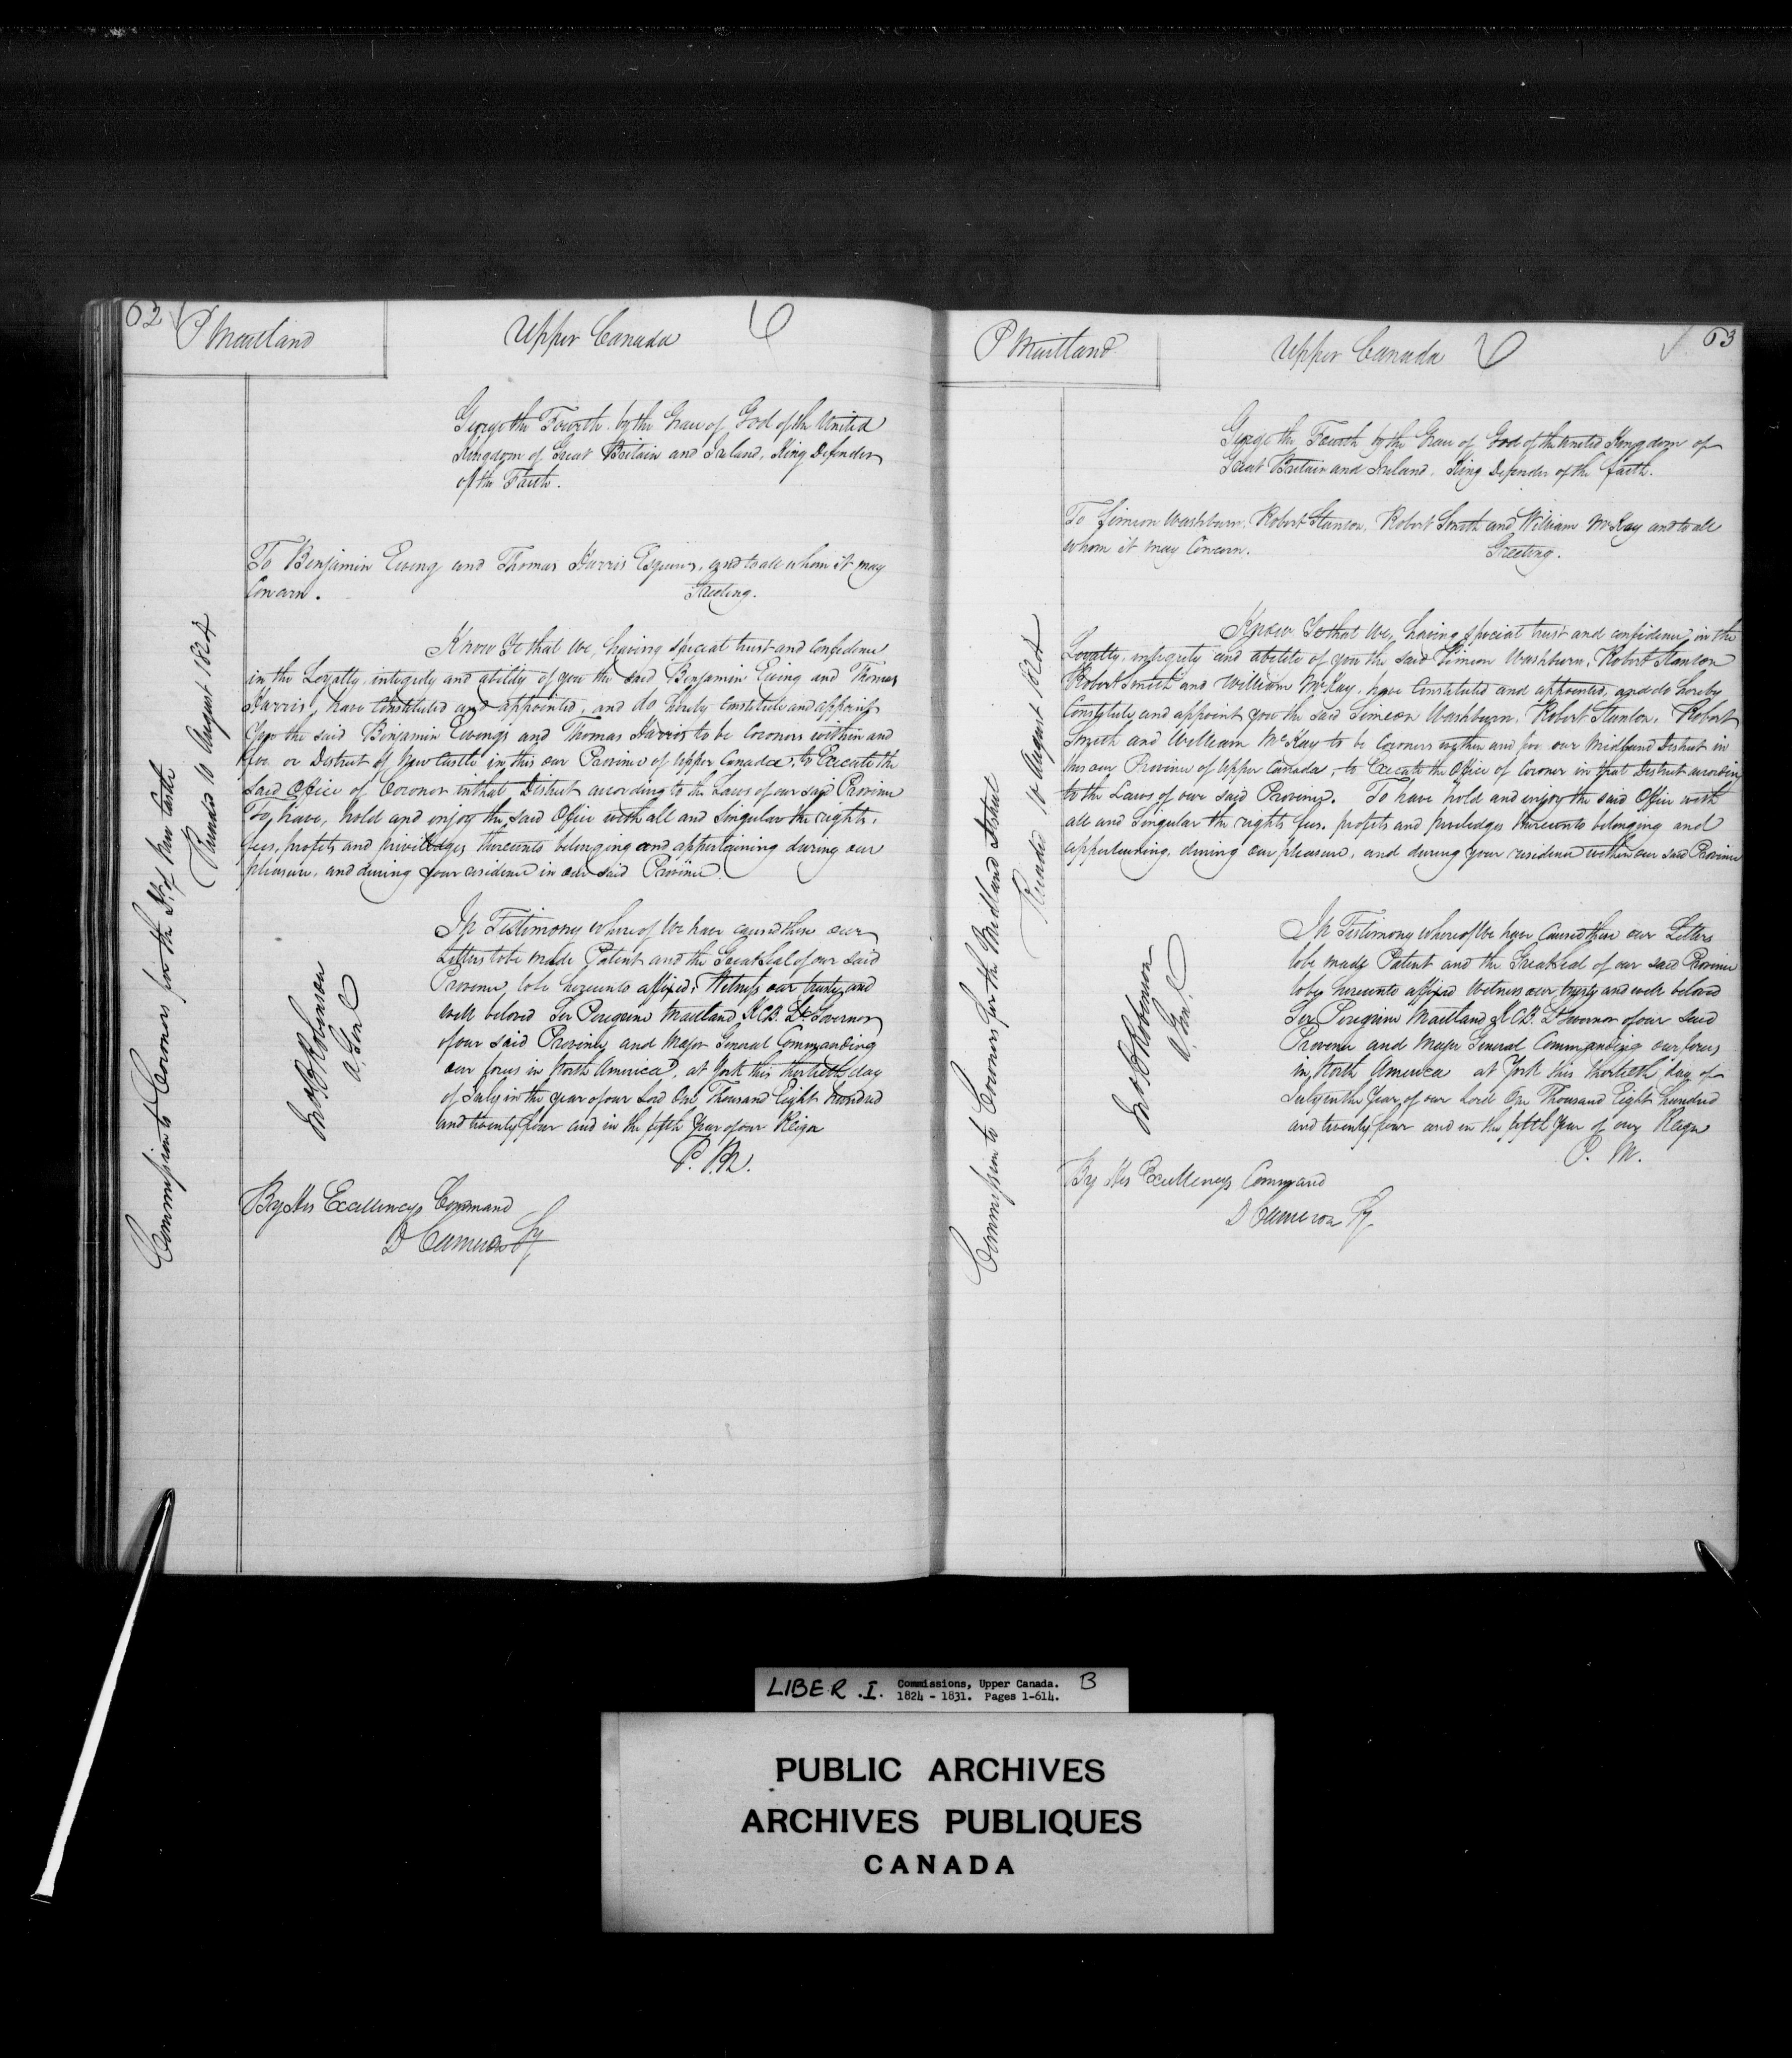 62
P Maitland
Upper Canada
George the Fourth by the Grace of God of the United
Kingdom of Great Britain and Ireland, King Defender
of the Faith.
To Benjamin Ewing and Thomas Harris Esquires, and to all whom it may
Concern.
Greeting.
Know Ye that We, having special trust and Confidence
in the Loyalty, integrity and ability of you the said Benjamin Ewing and Thomas
Harris, have Constituted and appointed, and do hereby Constitute and appoint
You the said Benjamin Ewings and Thomas Harris to be Coroners within and
for or District of New Castle in this our Province of Upper Canada, to Execute the
said Office of Coroner in that District according to the Laws of our said Province
To, have, hold and enjoy the said Office with all and Singular the rights,
fees, profits and priviledges thereunto belonging and appertaining during our
pleasure, and during your residence in our said Province
In Testimony whereof We have caused these our
Letters to be made Patent and the Great Seal of our said
Province to be hereunto affixed; Witness our trusty and
well beloved Sir Peregrine Maitland K.C.B. Lt. Governor
of our said Province, and Major General Commanding
our forces in North America, at York this thirtieth day
of July in the year of our Lord One Thousand Eight hundred
and twenty four and in the fifth Year of our Reign
P. M.
By His Excellencys Command
D Cameron Sy
Commission to Coroners for the Dt. of New Castle
Recorded 10 August 1824
Jno B Robinson
A. Genl
63
P Maitland
Upper Canada
George the Fourth by the Grace of God of the United Kingdom of
Great Britain and Ireland, King Defender of the faith.
To Simeon Washburn, Robert Stanton, Robert Smith and William McKay and to all
whom it may Concern.
Greeting.
Know Ye that We, having special trust and confidence in the
Loyalty, integrity and ability of you the said Simeon Washburn, Robert Stanton
Robert Smith and William McKay, have Constituted and appointed, and do hereby
Constitute and appoint you the said Simeon Washburn, Robert Stanton, Robert
Smith and William McKay to be Coroners within and for our Midland District in
this our Province of Upper Canada, to Execute the Office of Coroner in that District according
to the Laws of our said Province. To have hold and enjoy the said Office with
all and Singular the rights fees, profits and priviledges thereunto belonging and
appertaining, during our pleasure, and during your residence within our said Province
In Testimony whereof We have Caused these our Letters
to be made Patent and the Great Seal of our said Province
to be hereunto affixed Witness our trusty and well beloved
Sir Peregrine Maitland K.C.B. Lt Governor of our said
Province and Major General Commanding our forces
in, North America at York this thirtieth day of
July in the Year, of our Lord One Thousand Eight hundred
and twenty four and in the fifth Year of our Reign
P. M.
By His Excellencys Command
D Cameron Sy
Commission to Coroners for the Midland District
Recorded 10 August 1824
Jno B Robinson
A. Genl
LIBER .I. Commissions, Upper Canada. B
1824 - 1831. Pages 1-614.
PUBLIC ARCHIVES
ARCHIVES PUBLIQUES
CANADA